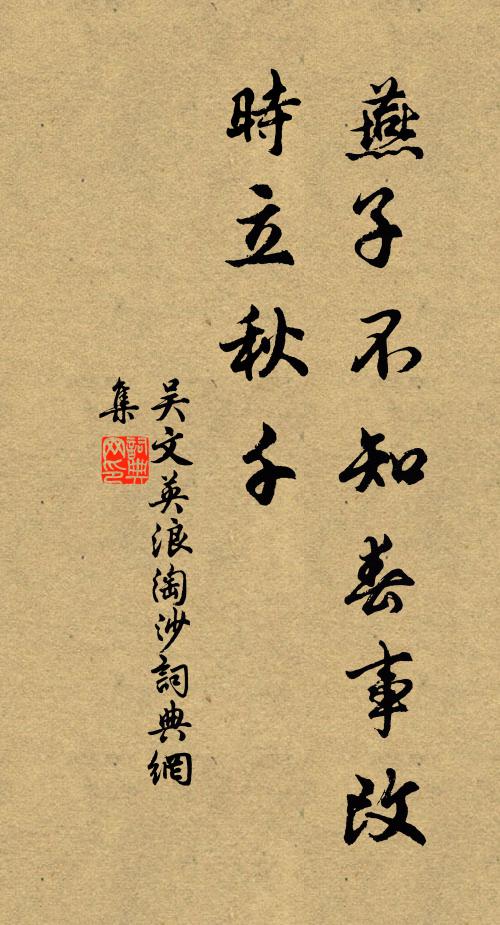 燕子不知春事改
時立秋千
吴文英浪淘沙詞典網
集
詞典
网印